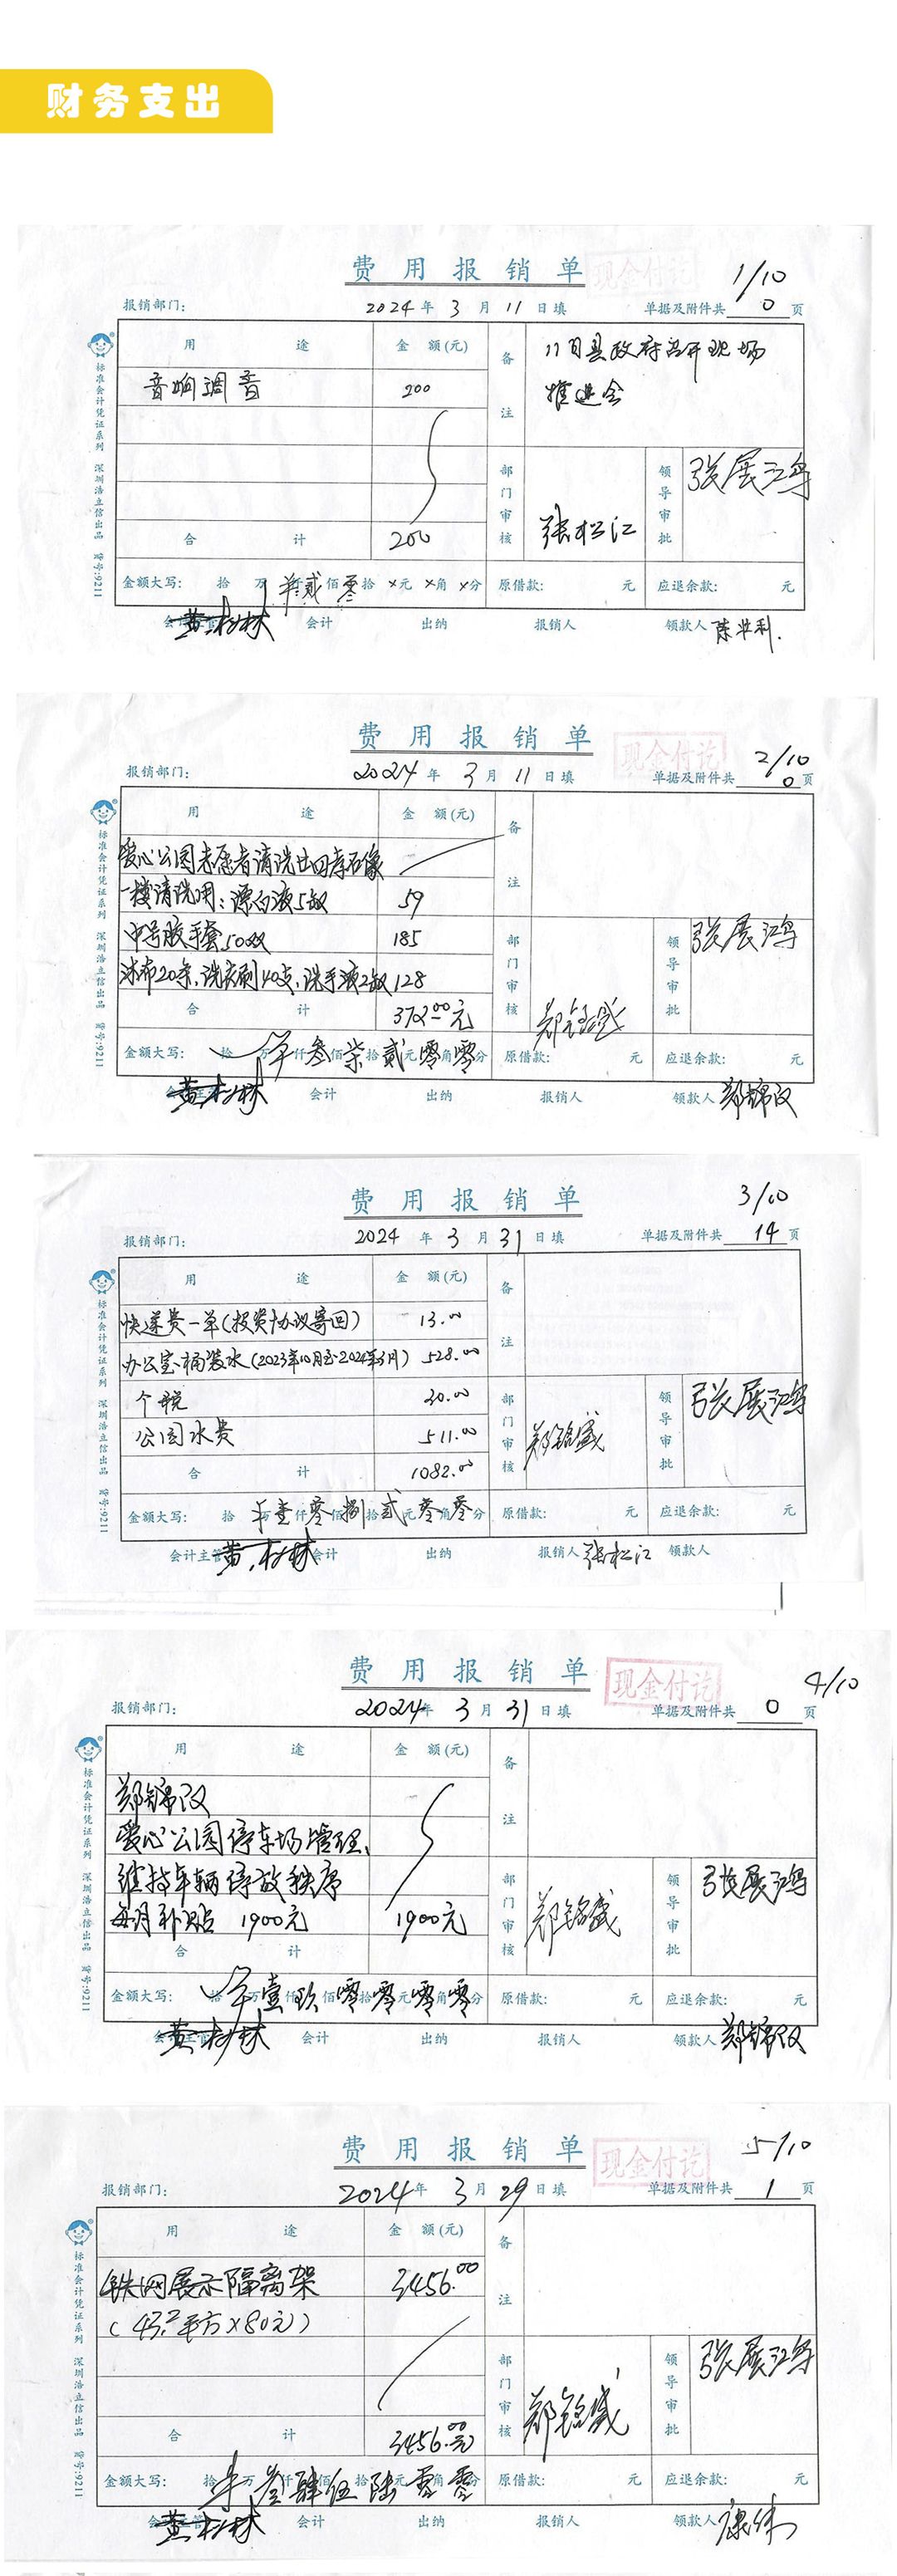 财务支出
费用报销单
现金付讫
1/10
报销部门:
2024年3月11日填
单据及附件共 0 页
用途
金额(元)
备注
11日县政府召开现场
推进会
音响调音
200
部门审核
张松江
领导审批
张展鸿
合计
200
金额大写: 拾万仟贰佰零拾×元×角×分
原借款: 元
应退余款: 元
会计主管
黄树林
会计
出纳
报销人
领款人
标准会计凭证系列 深圳浩立信出品 货号:9211
费用报销单
现金付讫
2/10
报销部门:
2024年3月11日填
单据及附件共 0 页
用途
金额(元)
备注
爱心公园志愿者清洗廿四孝石像
一楼清洗用:漂白液5瓶
59
中号胶手套50双
185
沐布20条、洗衣刷40支、洗手液2瓶
128
部门审核
郑铭盛
领导审批
张展鸿
合计
372.00元
金额大写: 拾万仟叁佰柒拾贰元零角零分
原借款: 元
应退余款: 元
会计主管
黄树林
会计
出纳
报销人
领款人
郑锦汉
标准会计凭证系列 深圳浩立信出品 货号:9211
费用报销单
3/10
报销部门:
2024年3月31日填
单据及附件共 14 页
用途
金额(元)
备注
快递费一单(投资协议寄回)
13.00
办公室桶装水(2023年10月至2024年3月)
528.00
个税
30.00
公园水费
511.00
部门审核
郑铭盛
领导审批
张展鸿
合计
1082.00
金额大写: 拾万壹仟零佰捌拾贰元零角零分
原借款: 元
应退余款: 元
会计主管
黄树林
会计
出纳
报销人
张松江
领款人
标准会计凭证系列 深圳浩立信出品 货号:9211
费用报销单
现金付讫
4/10
报销部门:
2024年3月31日填
单据及附件共 0 页
用途
金额(元)
备注
郑锦汉
爱心公园停车场管理、
维持车辆停放秩序
每月补贴 1900元
1900元
部门审核
郑铭盛
领导审批
张展鸿
合计
金额大写: 拾万壹仟玖佰零拾零元零角零分
原借款: 元
应退余款: 元
会计主管
黄树林
会计
出纳
报销人
领款人
郑锦汉
标准会计凭证系列 深圳浩立信出品 货号:9211
费用报销单
现金付讫
5/10
报销部门:
2024年3月29日填
单据及附件共 1 页
用途
金额(元)
备注
铁网展示隔离架
3456.00
(43.2平方×80元)
部门审核
郑铭盛
领导审批
张展鸿
合计
3456.00元
金额大写: 拾万叁仟肆佰伍拾陆元零角零分
原借款: 元
应退余款: 元
会计主管
黄树林
会计
出纳
报销人
领款人
标准会计凭证系列 深圳浩立信出品 货号:9211